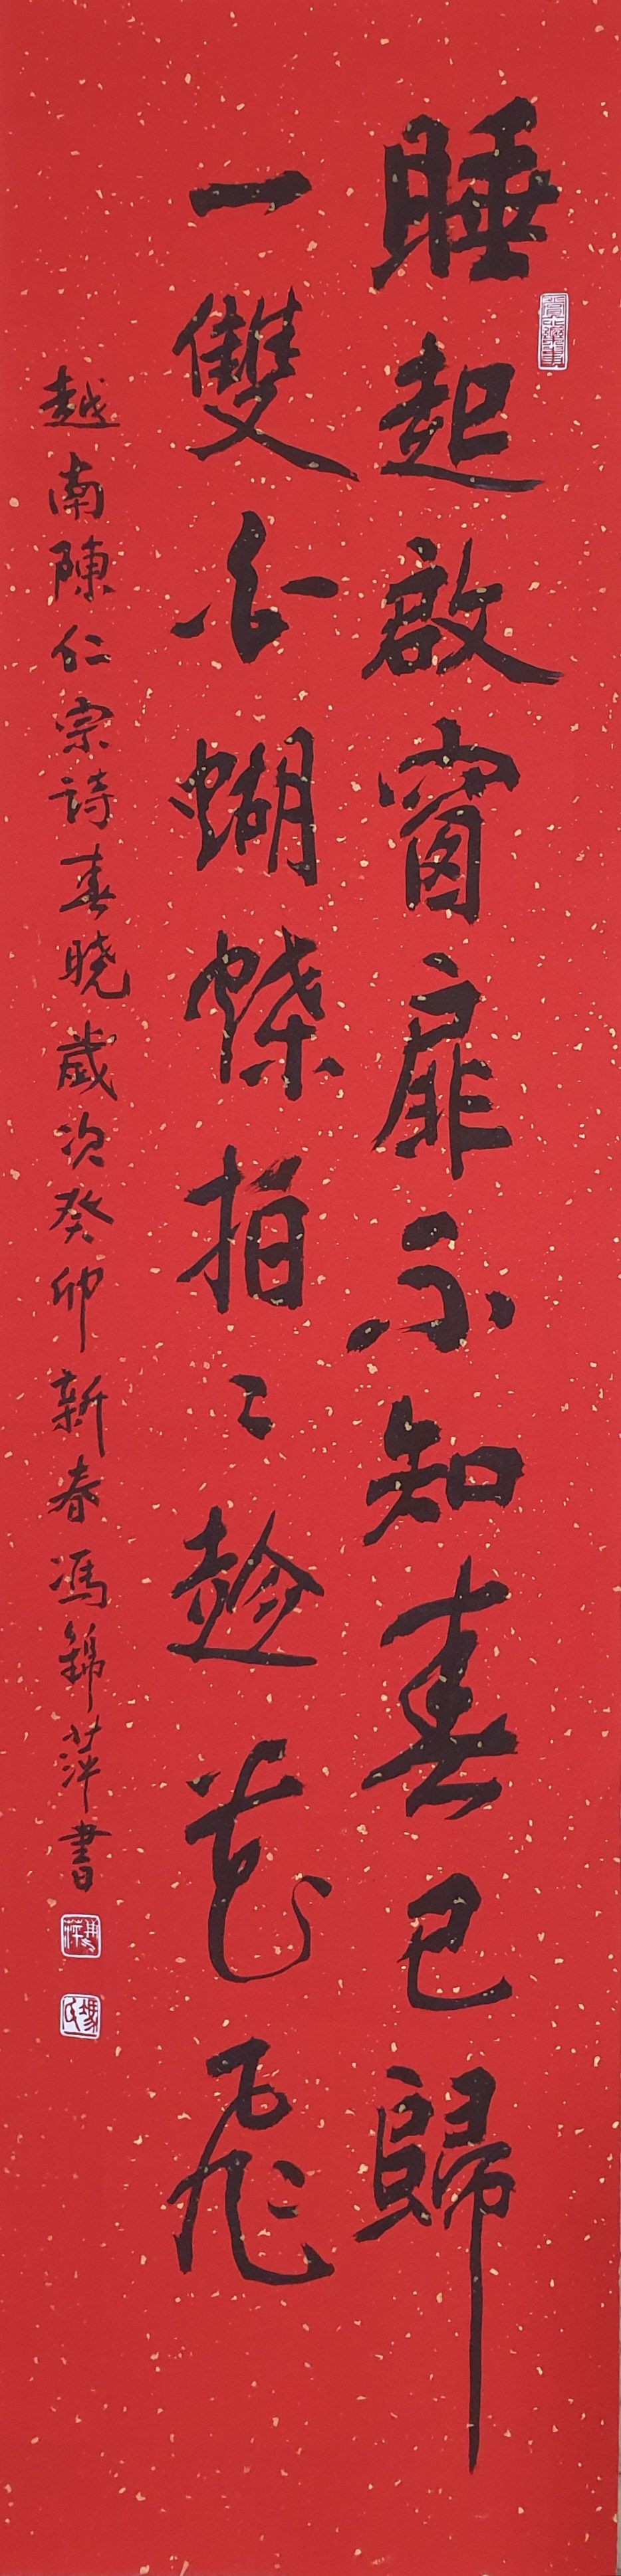 睡起啟窗扉不知春已歸
一雙白蝴蝶拍〻趁花飛
越南陳仁宗詩春曉歲次癸卯新春馮錦萍書